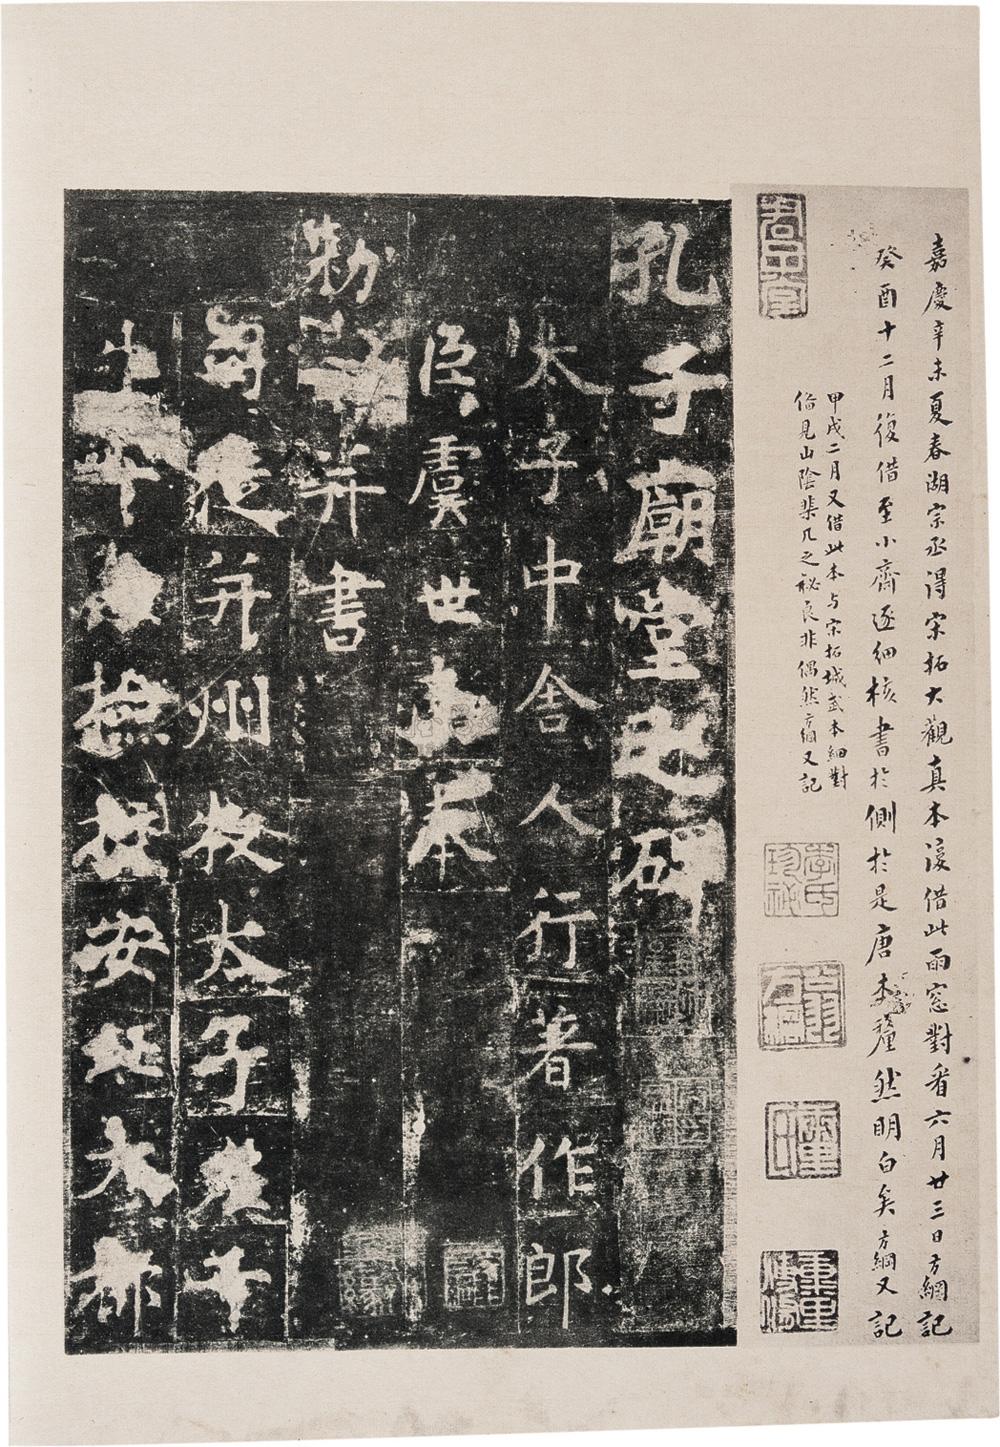 嘉慶辛未夏春湖宗丞得宋拓大觀真本復借此雨窓對看六月廿三日方綱記
癸酉十二月復借至小齋逐細核書於側於是唐本釐然明白矣方綱又記
甲戌二月又借此本与宋拓城武本細對
俻見山陰棐几之秘良非偶然方綱又記
孔子廟堂之碑
太子中舍人行著作郎
臣虞世南奉
勑
并書
司徒并州牧太子左千
牛率
撿挍安北大都